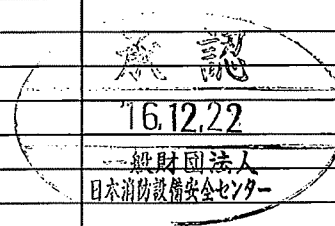 承認
'16.12.22
一般財団法人
日本消防設備安全センター